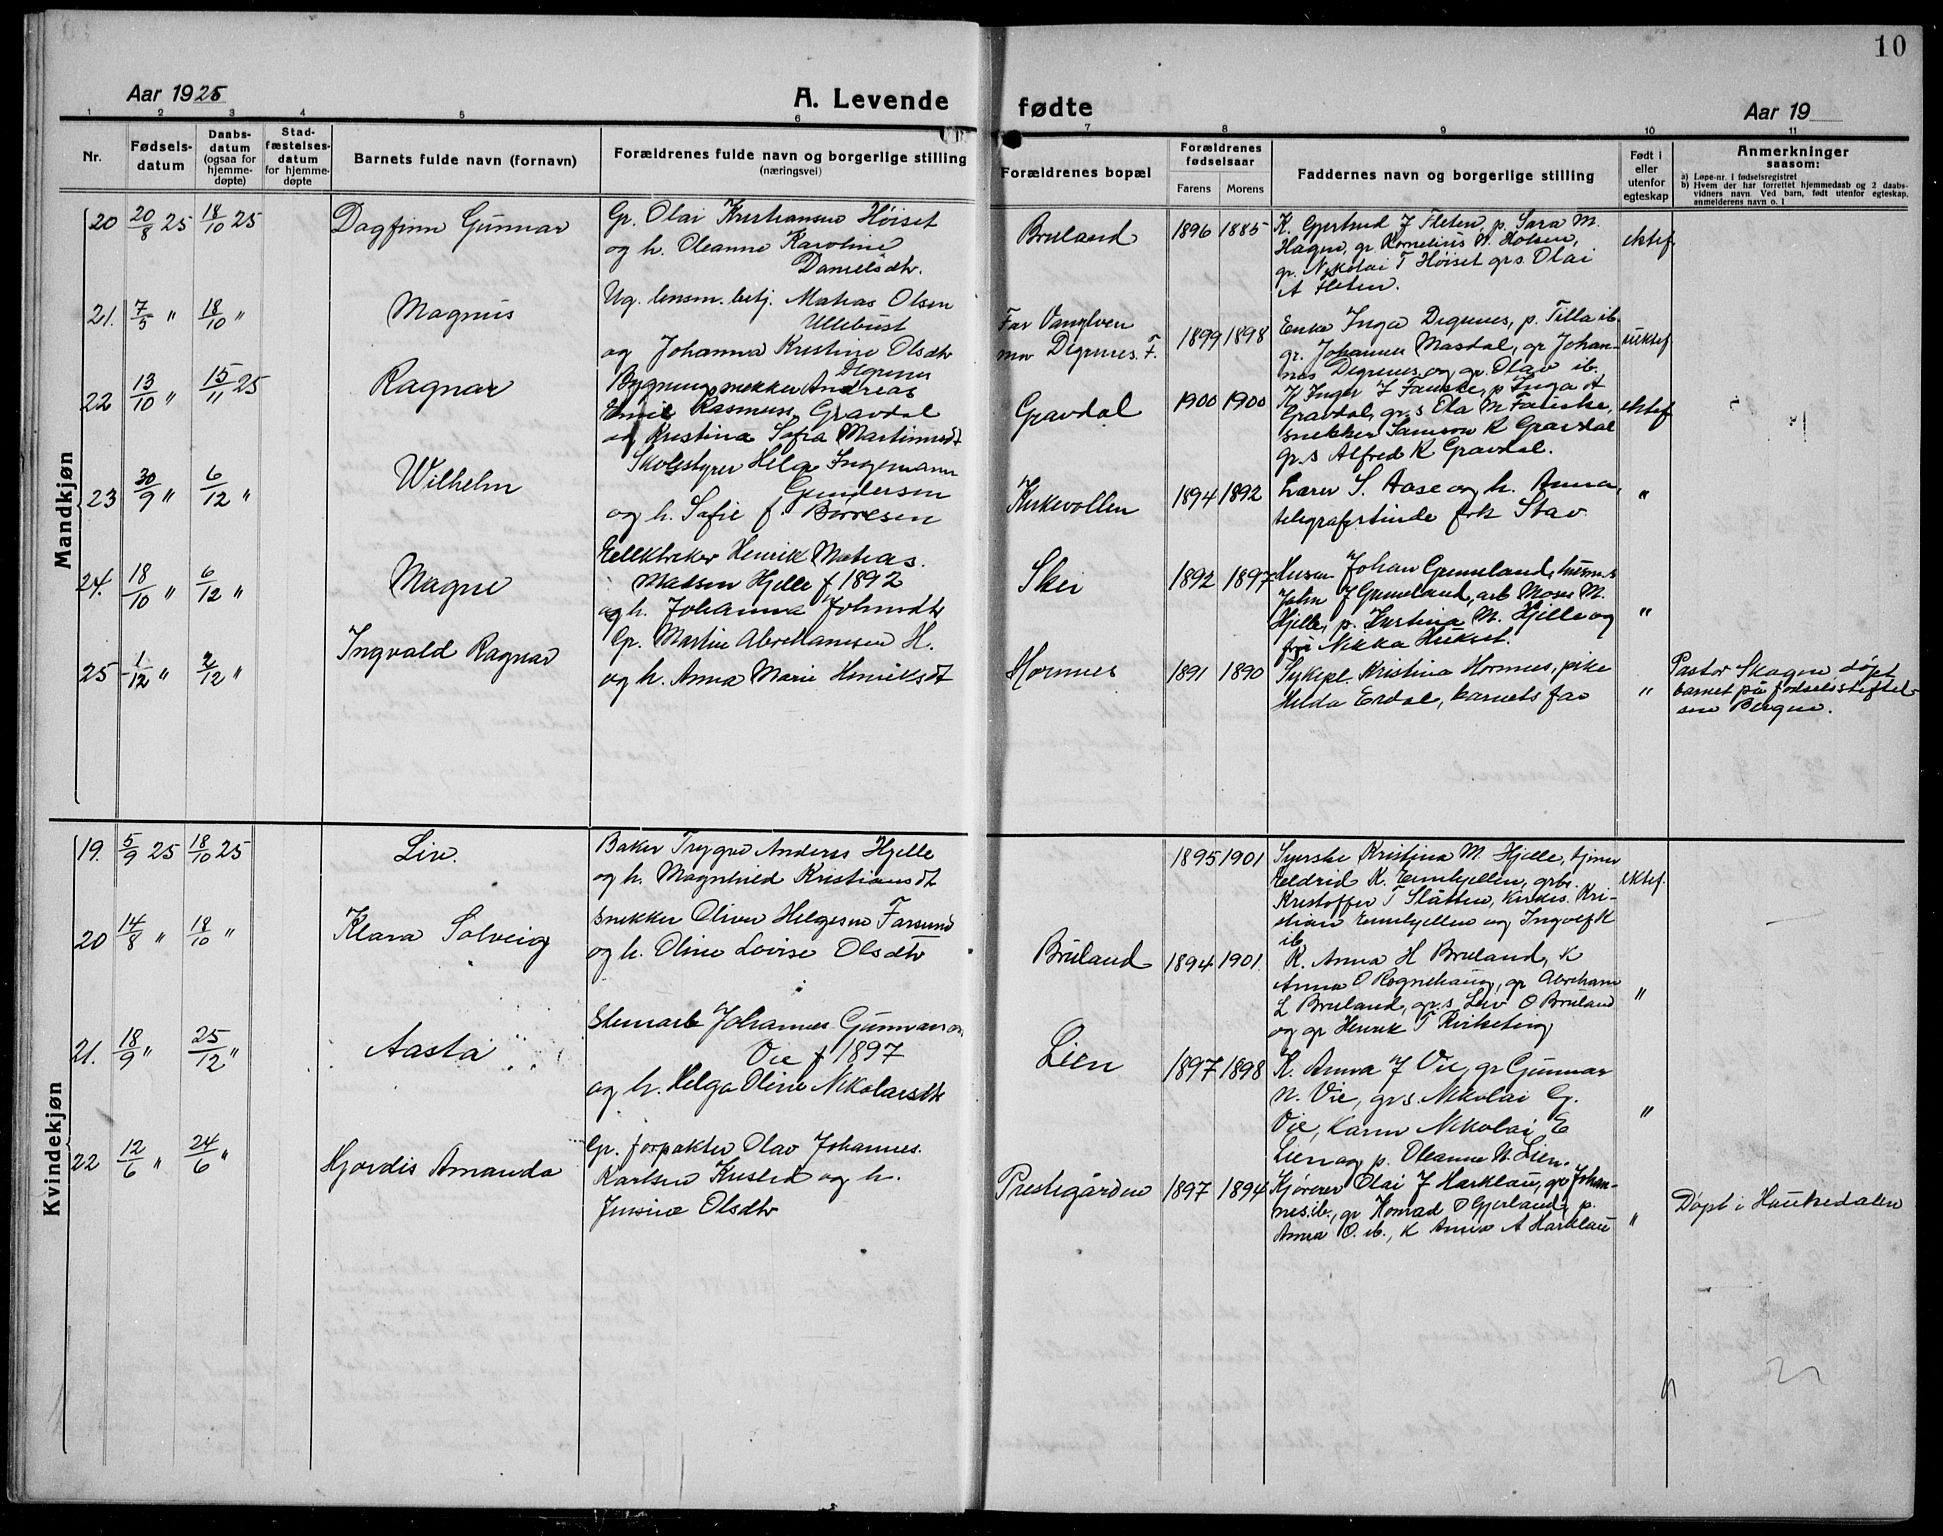 10
Aar 1925
A. Levende fødte
Aar 19
1 2 3 4 5 6 7 8 9 10 11
Nr.
Fødsels-
datum
Daabs-
datum
(ogsaa for
hjemme-
døpte)
Stad-
fæstelses-
datum
for hjemme-
døpte
Barnets fulde navn (fornavn)
Forældrenes fulde navn og borgerlige stilling
(næringsvei)
Forældrenes bopæl
Forældrenes
fødselsaar
Farens Morens
Faddernes navn og borgerlige stilling
Født i
eller
utenfor
egteskap
Anmerkninger
saasom:
a) Løpe-nr. i fødselsregistret
b) Hvem der har forrettet hjemmedaab og 2 daabs-
vidners navn. Ved barn, født utenfor egteskap,
anmelderens navn o. l
Mandkjøn
20 20/8 25 18/10 25
Dagfinn Gunnar
Gr. Olai Kristiansen Høiset
og h. Oleanne Karoline
Danielsdtr.
Bruland
1896 1885
K. Gjertrud J Fleten, p. Sara M.
Hagen, gr Kornelius A. Holsen,
gr. Nikolai T Høiset grs. Olai
A Fleten.
ektef
21. 7/5 " 18/10 "
Magnus
Ug. lensm. betj. Matias Olsen
Ullebust
og Johanna Kristine Olsdtr
Degrenes
Far Vanglven
mor Degrenes. F.
1899 1898
Enke Inga Degrenes, p. Tilla ib.
gr. Johannes Masdal, gr Johan-
nes Degrenes og gr. Olav ib.
uektef
22 13/10 " 15/11 25
Ragnar
Bygningssnekker Andreas
Emil Rasmusen Gravdal
og Kristina Sofia Martinusdt
Gravdal
1900 1900
K Inger J Fauske, p Inga A
Gravdal, gr.s Ola M Fauske,
snekker Samson R Gravdal
gr.s Alfred R Gravdal.
ektef
23 30/9 " 6/12 "
Wilhelm
Skolestyrer Helge Ingemann
Gundersen
og h. Sofie f. Børresen
Kirkevollen
1894 1892
Lærer S. Aase og h. Anna,
telegrafestinde frk Stav.
"
24. 18/10 " 6/12 "
Magne
Henrik Matias
Madsen Hjelle f 1892
og h. Johanna Johnsdtr
Skei
1892 1897
Johan Grimeland,
John J Grimeland, arb Moses M.
Hjelle, p. Kristina M. Hjelle og
"
25 1/12 " 2/12 "
Ingvald Ragnar
Gr. Martin Abrahamsen H.
og h. Anna Marie Henriksdt
Hornnes
1891 1890
Sykepl. Kristina Hornnes, pike
Hilda Erdal, barnets far
"
Pastor Skagen døpt
barnet på fødselsstiftel-
sen Bergen.
Kvindekjøn
19. 5/9 25 18/10 25
Liv.
Baker Trygve Anders Hjelle
og h. Magnhild Kristiansdt
1895 1901
Syerske Kristina M. Hjelle, tjener
Eldrid K. Ennhjellen, grbr.
Kristoffer T Slåtten, kirkes. Kri-
stian Ennhjellen og Ingolf K
ib
ektef.
20 14/8 " 18/10 "
Klara Solveig
Snekker Oliver Helgesen Farsund
og h. Oline Lovise Olsdtr
Bruland
1894 1901.
K. Anna H Bruland, K
Anna O Rognehaug, gr Abraham
L Bruland, gr.s Leiv O Bruland
og gr Henrik T
"
21. 18/9 " 25/12 "
Aasta
Stenarb Johannes Gunnarson
Vie f 1897
og h. Helga Oline Nikolaisdtr
Lien
1897 1898
K. Anna J Vie, gr Gunnar
N. Vie, grs. Nikolai G.
Vie, Karen Nikolai E
Lien og p. Oleanne N. Lien.
"
22 12/6 " 24/6 "
Hjørdis Amanda
Gr. forpakter Olav Johannes
Karlsen og h.
Jensine Olsdtr
Prestegården
1897 1894
Kjørerer Olai J Harklau, gr Johan-
nes ib., gr Konrad O Gjerland, p.
Anna O. ib., K Anna A Harklau
"
Døpt i Haukedalen